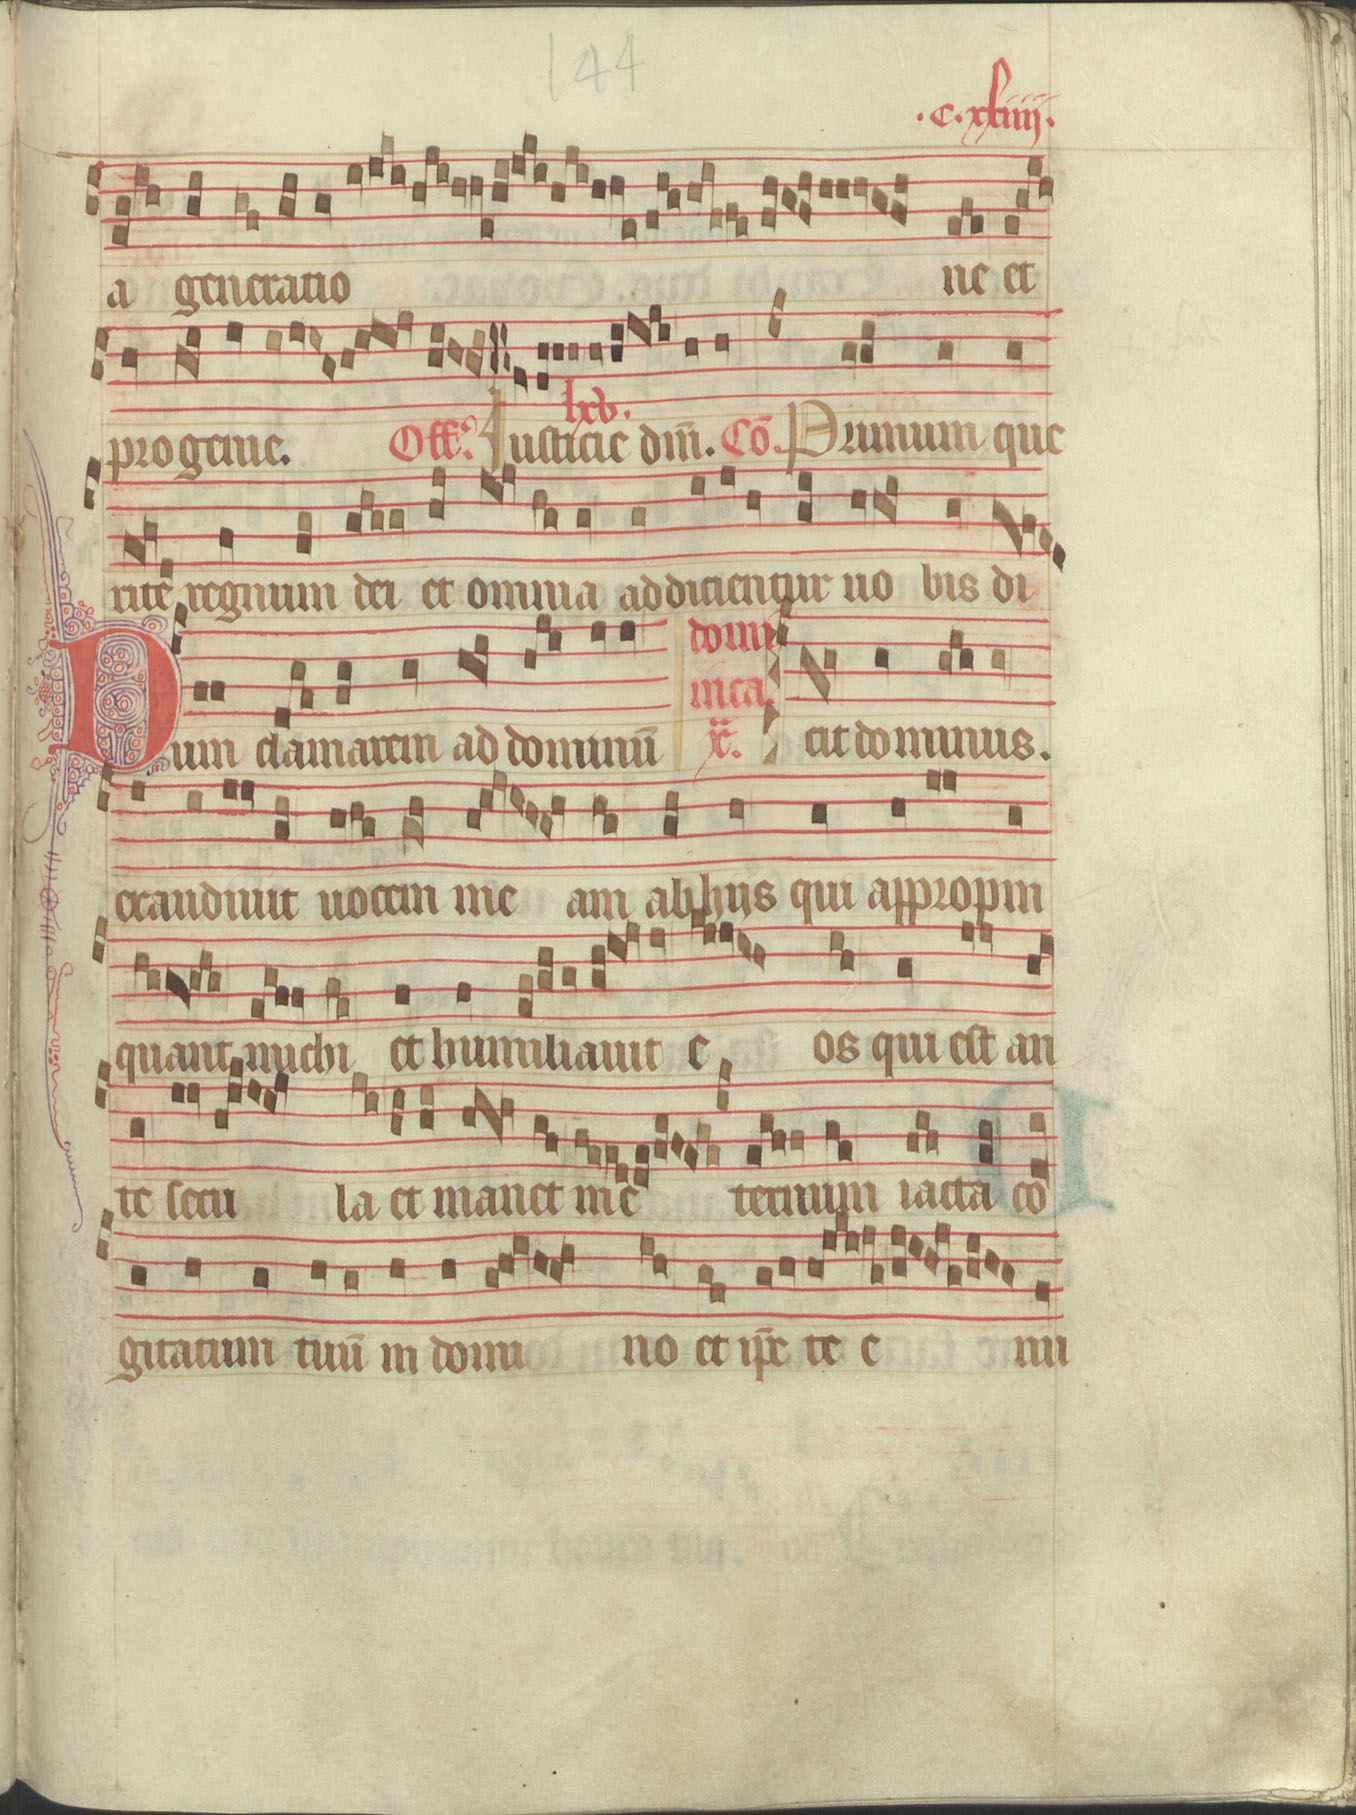 144
.c.xliiii.
a generatio ne et
lxv.
progenie. Off. Iusticie dm̄. Cō. Primum que
rite regnum dei et omnia addicientur uo bis di
domi
nica
x.
Dum clamarem ad dominū cit dominus.
exaudiuit uocem me am ab hijs qui appropin
quant michi et humiliauit e os qui est an
te secu la et manet in e ternum iacta co
gitatum tuū in domi no et ip̄e te e nu